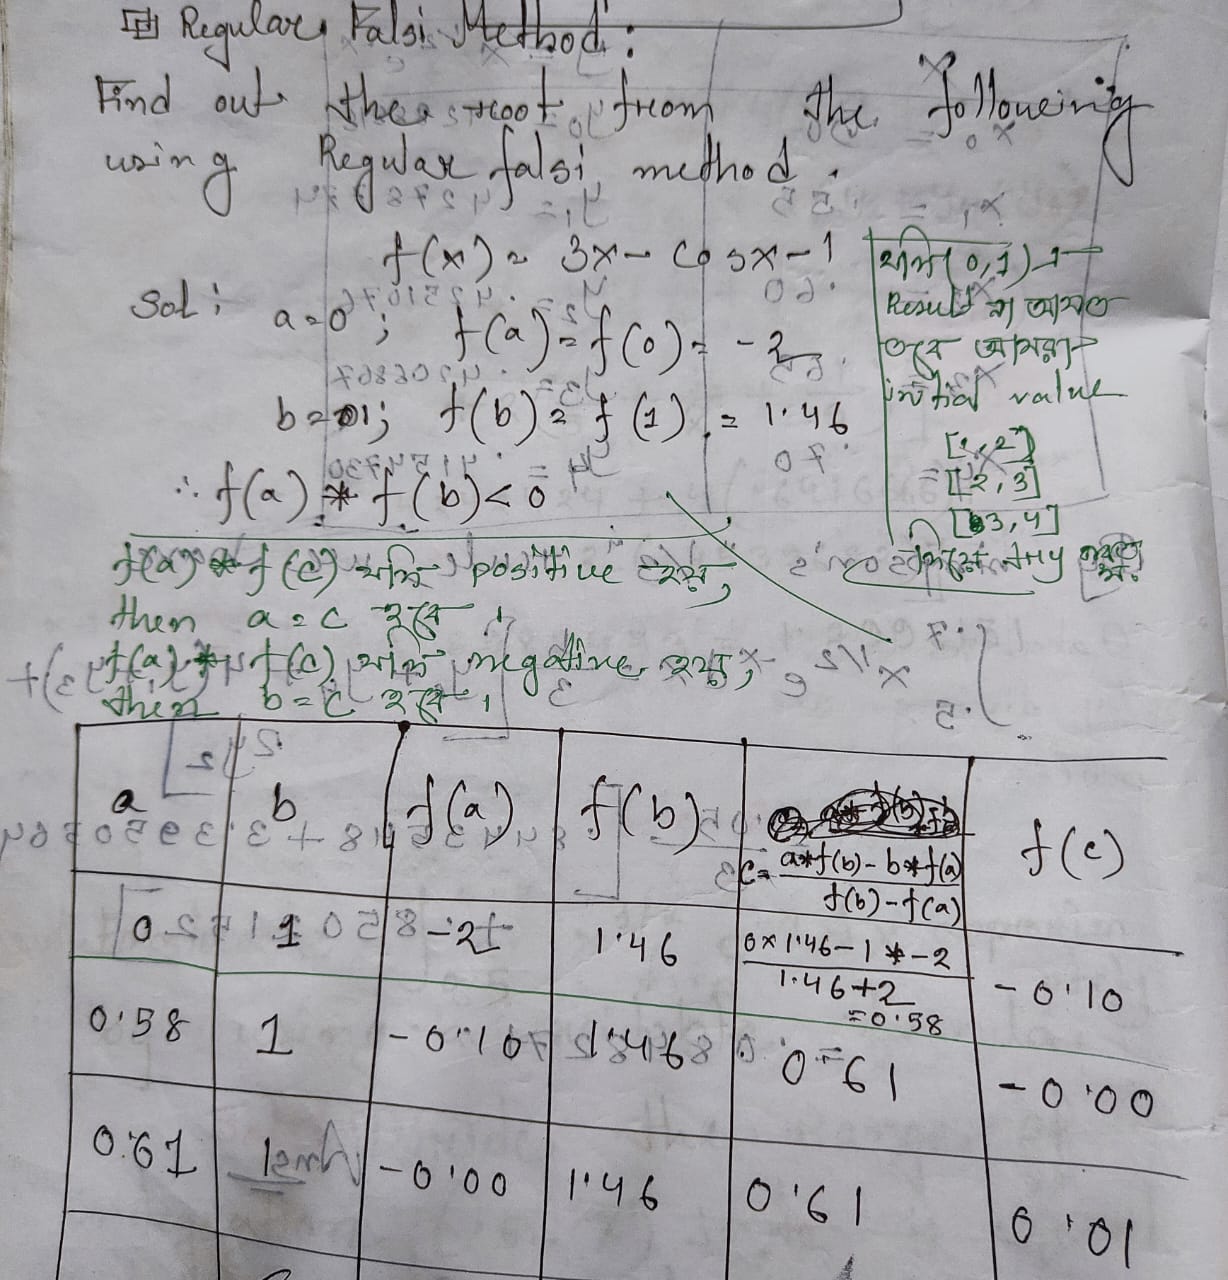 Regular Falsi Method:
Find out the root from the following
using Regular falsi method.
f(x) = 3x - cosx - 1
Sol:
a=0; f(a) = f(0) = -2
b=1; f(b) = f(1) = 1.46
∴ f(a) * f(b) < 0
যদি (0,1) এ
Result না আসত
তবে আমরা
initial value
[1,2]
[2,3]
[3,4]
any
f(a) * f(c) যদি positive হয়,
then a = c হবে।
f(a) * f(c) যদি negative হয়,
then b = c হবে।
a b f(a) f(b) c = a*f(b) - b*f(a) / f(b) - f(a) f(c)
0 1 -2 1.46 0×1.46 - 1*-2 / 1.46+2 = 0.58 -0.10
0.58 1 -0.10 1.46 0.61 -0.00
0.61 1 -0.00 1.46 0.61 0.01